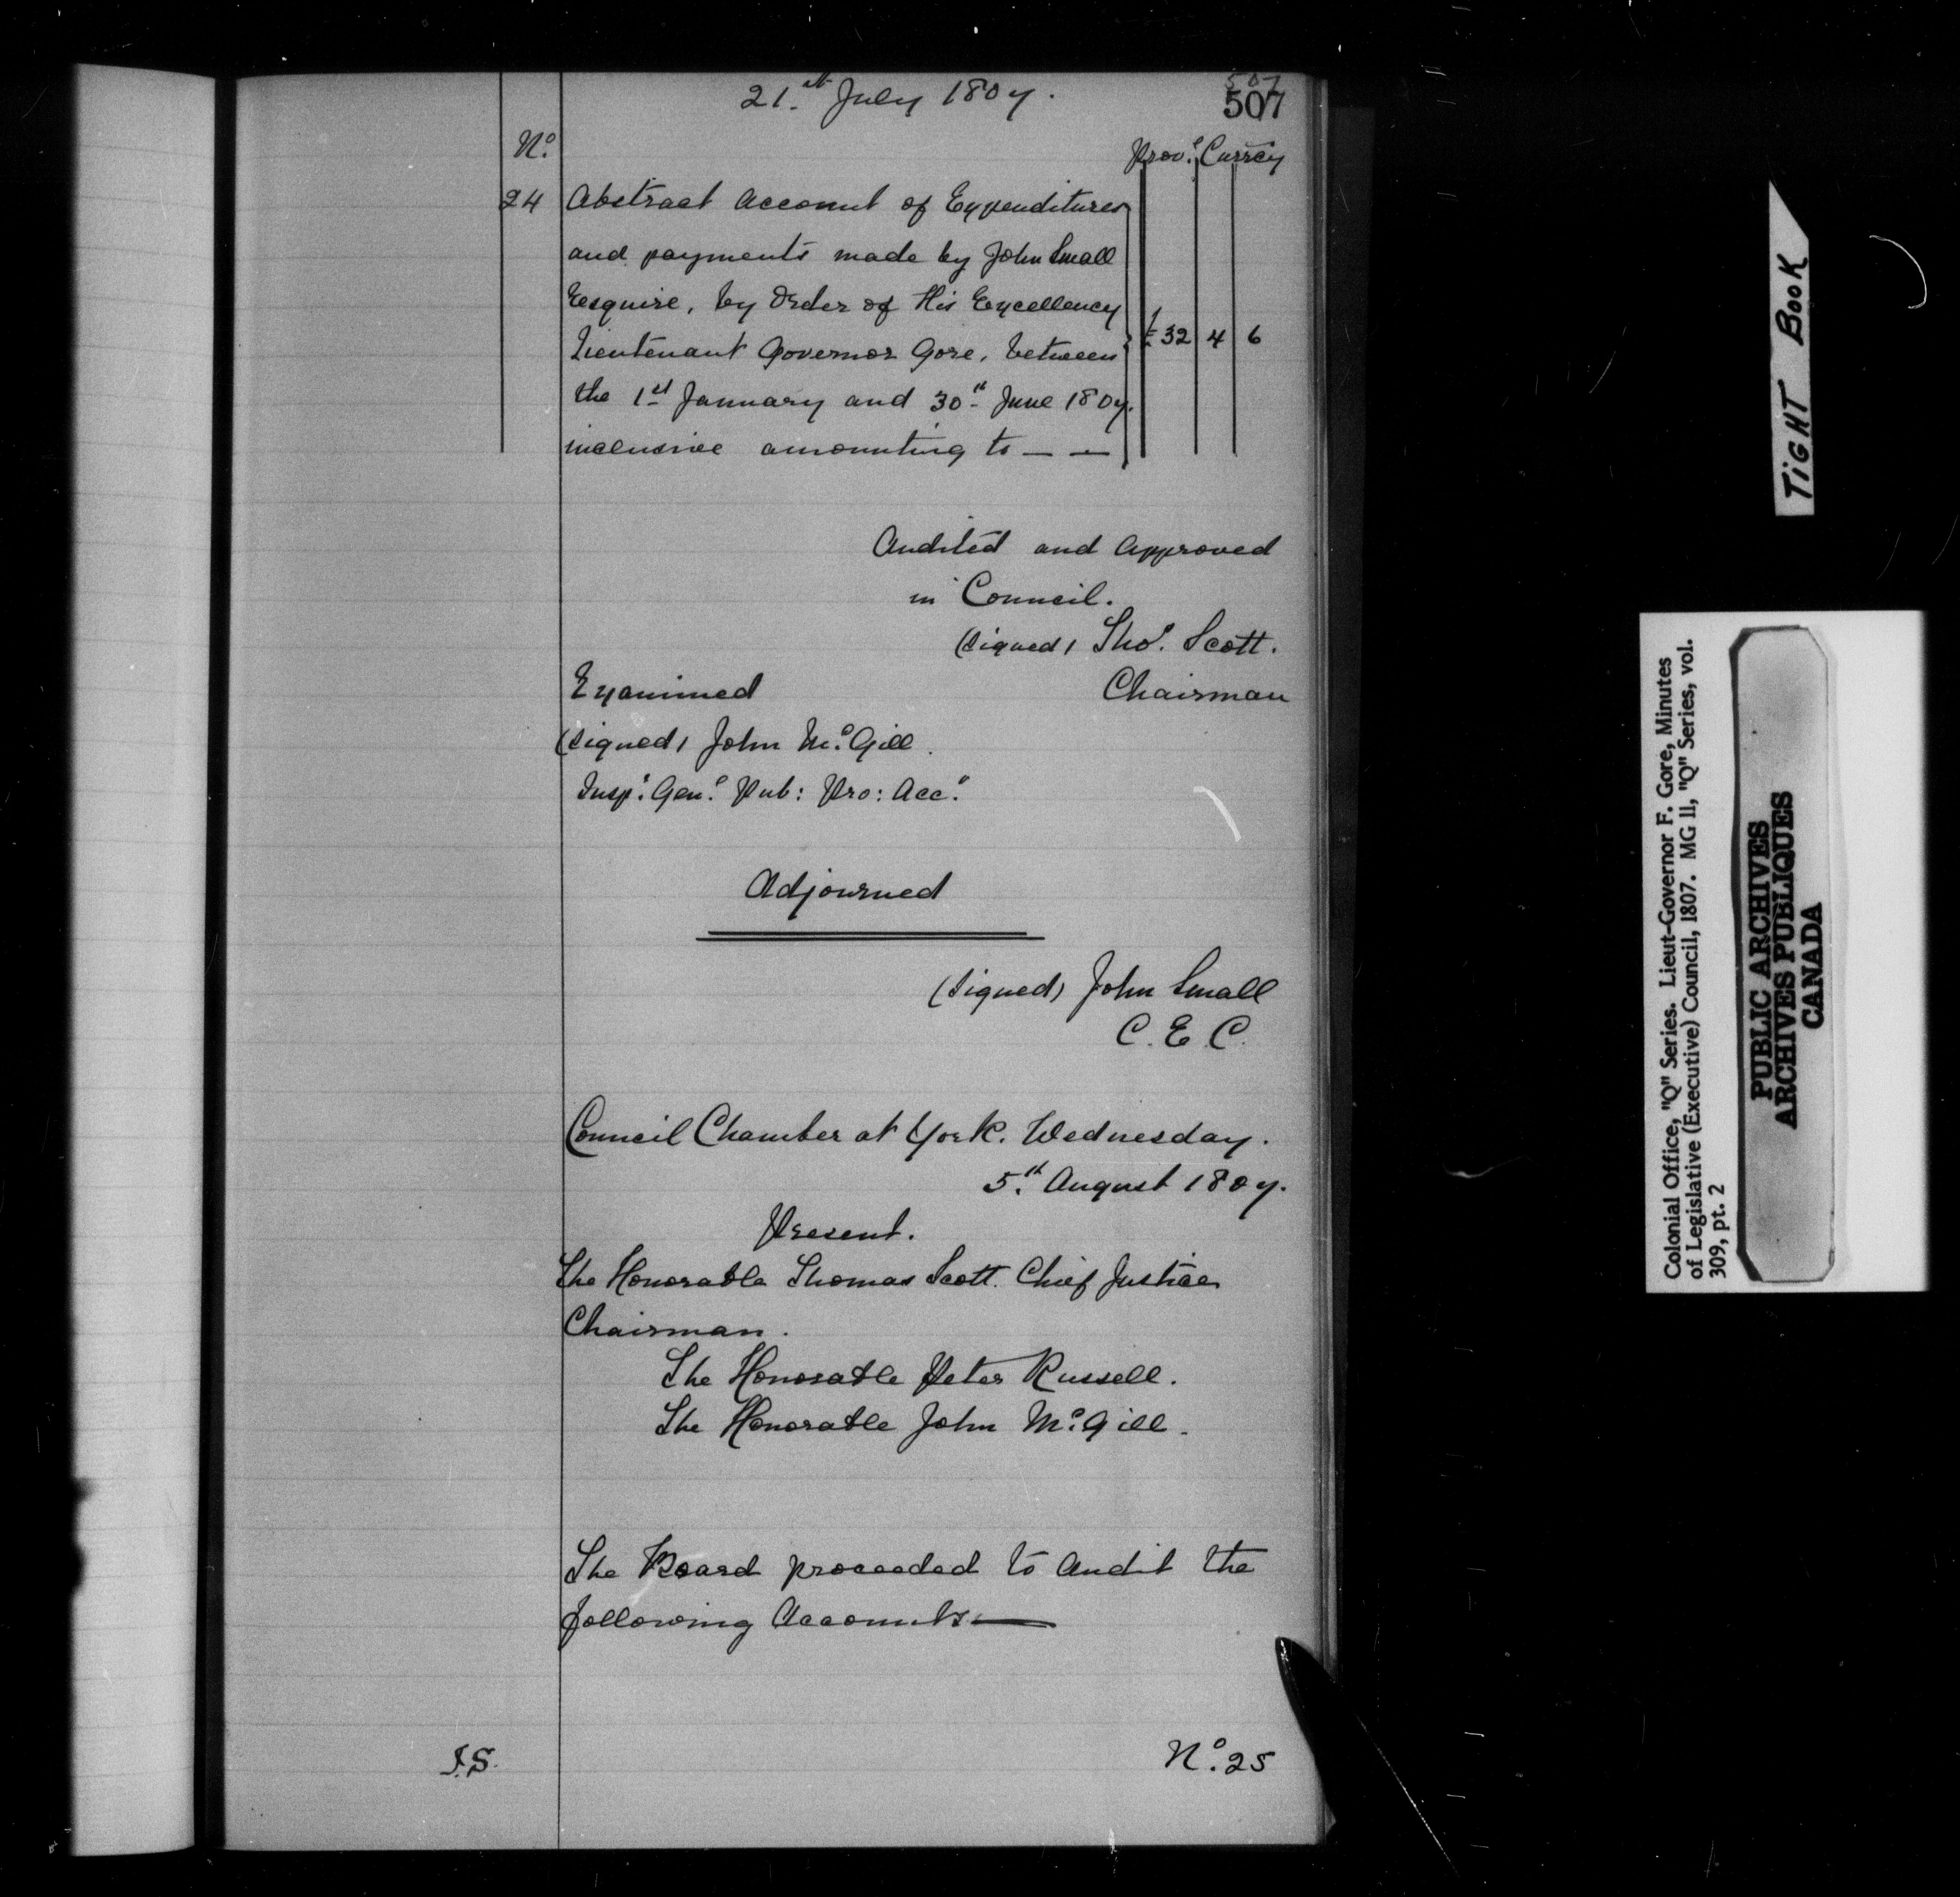 21.st July 1807.
507
507
No.
Prov.l Curr̅cy
24 Abstract Account of Expenditures
and payments made by John Small
Esquire, by Order of His Excellency
Lieutenant Governor Gore, between
£32 4 6
the 1st January and 30th June 1807.
inclusive amounting to — —
Audited and Approved
in Council.
(signed) Thos. Scott.
Examined
Chairman
(signed) John Mc.Gill.
Insp.r Gen.l Pub: Pro: Acc.ts
Adjourned
(signed) John Small
C. E. C.
Council Chamber at York. Wednesday.
5.th August 1807.
Present.
The Honorable Thomas Scott. Chief Justice
Chairman.
The Honorable Peter Russell.
The Honorable John Mc.Gill.
The Board proceeded to Audit the
following Accounts—
J.S.
No. 25
TIGHT BOOK
Colonial Office, "Q" Series. Lieut-Governor F. Gore, Minutes
of Legislative (Executive) Council, 1807. MG 11, "Q" Series, vol.
309, pt. 2
PUBLIC ARCHIVES
ARCHIVES PUBLIQUES
CANADA